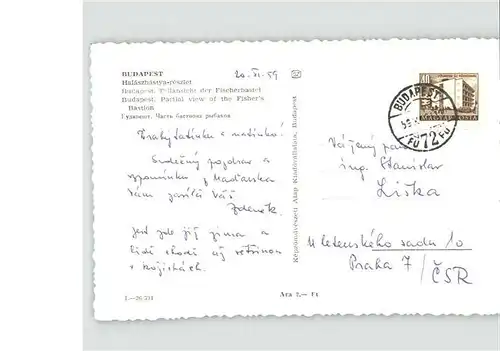 BUDAPEST
Halászbástya-részlet
Budapest, Teilansicht der Fischerbastei
Budapest, Partial view of the Fisher's
Bastion
Будапешт. Часть бастиона рыбаков
20. XI. 59
Drahý tatínku a matinko!
Srdečný pozdrav a
vzpomínku z Maďarska
Vám zasílá Váš
Zdenek.
Jest zde již zima a
lidi chodí už většinou
v kožichách.
1.—26/591
Ara 2,— Ft
Képzőművészeti Alap Kiadóvállalata, Budapest
40
MAGYAR POSTA
BUDAPEST
72
Vážený pan
ing. Stanislav
Liška
U letenského sadu 10
Praha 7/
ČSR